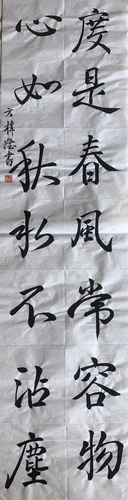 度是春風常容物
心如秋水不沾塵
方樟澄書